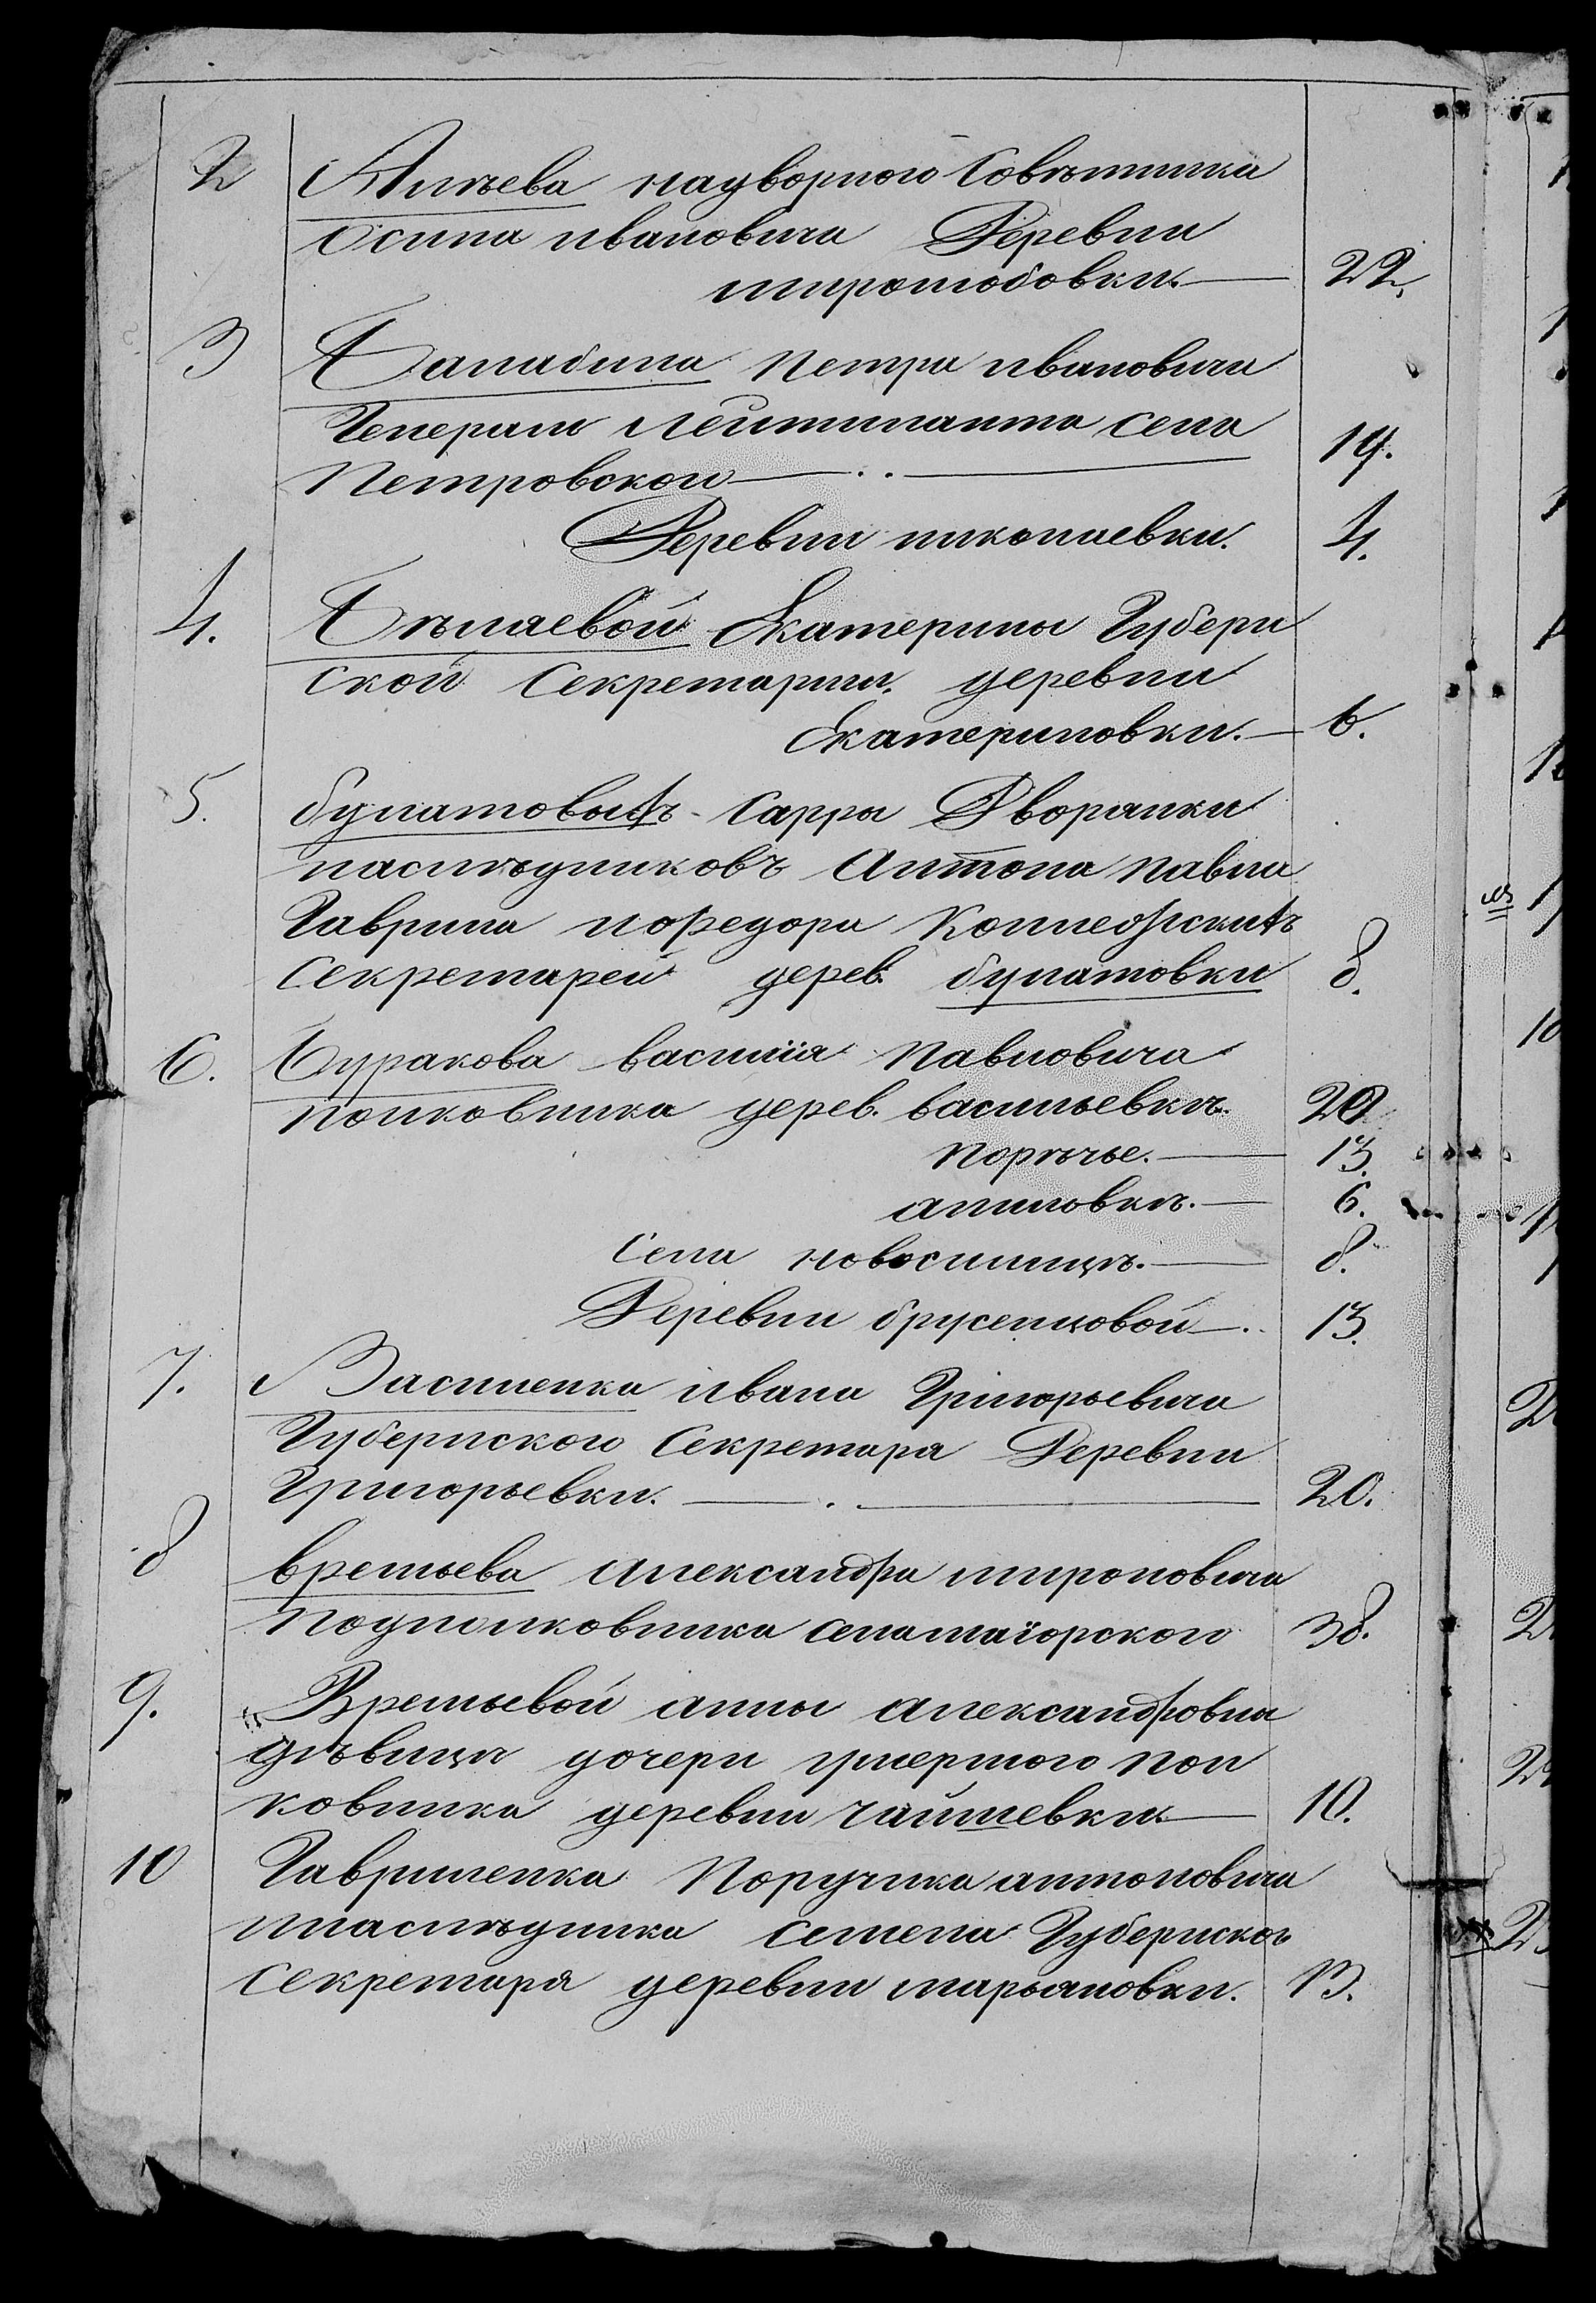 2 Алѣева надворного Совѣтника
Осипа ивановича Деревни
миролюбовки. 22.
3 Балабина петра ивановича
Генерал Лейтинанта села
Петровской 19.
Деревни николаевки. 4.
4. Бѣлаевой Екатерины Губерн
ской Секретарши. деревни
Екатериновки. 6.
5. булатовыхъ Сарры Дворанки
наслѣдниковъ Антона павла
Гаврила иофедора Коллежскихъ
Секретарей дерев. булатовки 8.
6. Буракова василия Павловича
полковника дерев. васильевкѣ. 20
Порѣчье. 13.
аниновкѣ. 6.
Села новоснищѣ. 8.
Деревни брусенцовой 13.
7. Василенка ивана Григорьевича
Губернского Секретара Деревни
Григорьевки. 20.
8 вретьева александра мироновича
Подполковника села 38.
9. Вретьевой анны александровна
дѣвицы дочери умершого пол
ковника деревни 10.
10 Гавриленка Поручика антоновича
наслѣдника семена Губернског
секретаря деревни марьановки. 13.